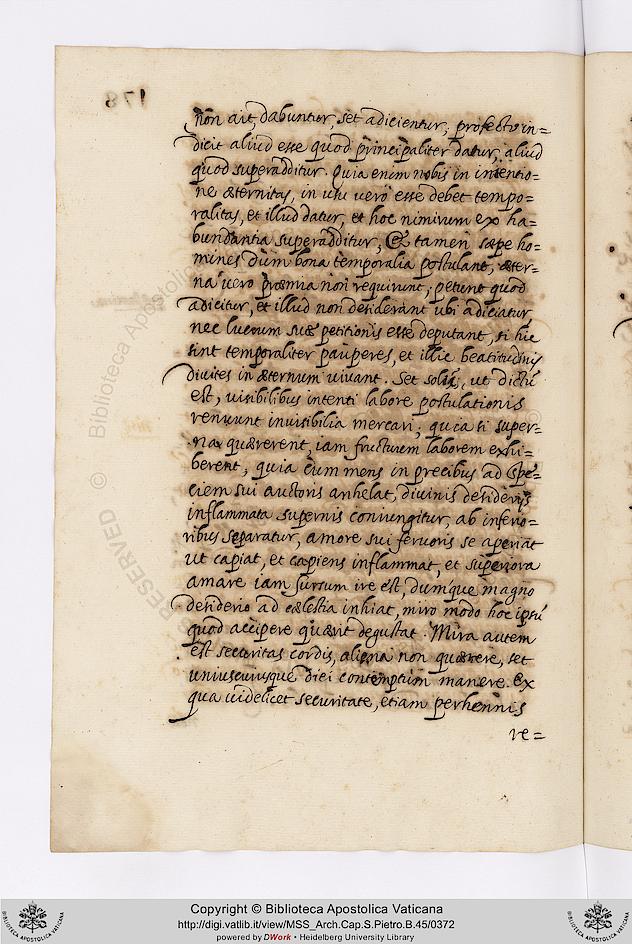 178
non ait, dabuntur, set adicientur, profecto in=
dicit aliud esse quod principaliter datur, aliud
quod superadditur. Quia enim nobis in intentio=
ne æternitas, in usu vero esse debet tempo=
ralitas, et illud datur, et hoc nimirum ex ha=
bundantia superadditur, Et tamen sæpe ho=
mines dum bona temporalia postulant, æter=
na vero præmia non requirunt, petunt quod
adicitur, et illud non desiderant ubi adiciatur,
nec lucrum suæ petitionis esse deputant, si hic
sint temporaliter pauperes, et illic beatitudinis
divites in æternum vivant. Set solis, ut dictũ
est, visibilibus intenti labore postulationis
renuunt invisibilia mercari; quia si super=
na quærerent, iam fructuum laborem exhi=
berent; quia cum mens in precibus ad spe=
ciem sui auctoris anhelat, divinis desiderijs
inflammata supernis coniungitur, ab inferio=
ribus separatur, amore sui fervoris se aperiat
ut capiat, et capiens inflammat, et superiora
amare iam sursum ire est, dumque magno
desiderio ad cælestia inhiat, miro modo hoc ipsũ
quod accipere quærit degustat. Mira autem
est securitas cordis, aliena non quærere, set
uniuscuiusque diei contemptum manere. Ex
qua videlicet securitate, etiam perhennis
re=
© Biblioteca Apostolica
RESERVED ©
Copyright © Biblioteca Apostolica Vaticana
http://digi.vatlib.it/view/MSS_Arch.Cap.S.Pietro.B.45/0372
powered by DWork • Heidelberg University Library